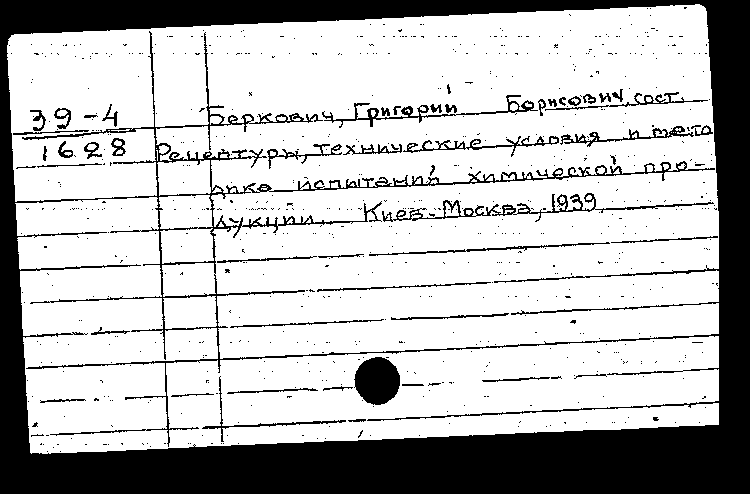 39-4 Беркович, Григорий Борисович, сост.
1628 Рецептуры, технические условия и мето
дика испытаний химической про-
дукции. Киев-Москва, 1939